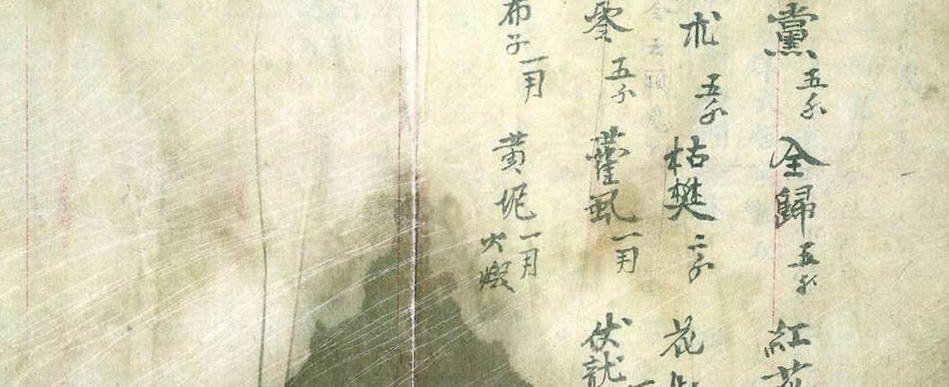 黨 五分 全歸 五分 紅花
朮 五分 枯樊 二分 花
零 五分 藿虱 一月 伏龍
布子 一月 黄坭 一月 火煅